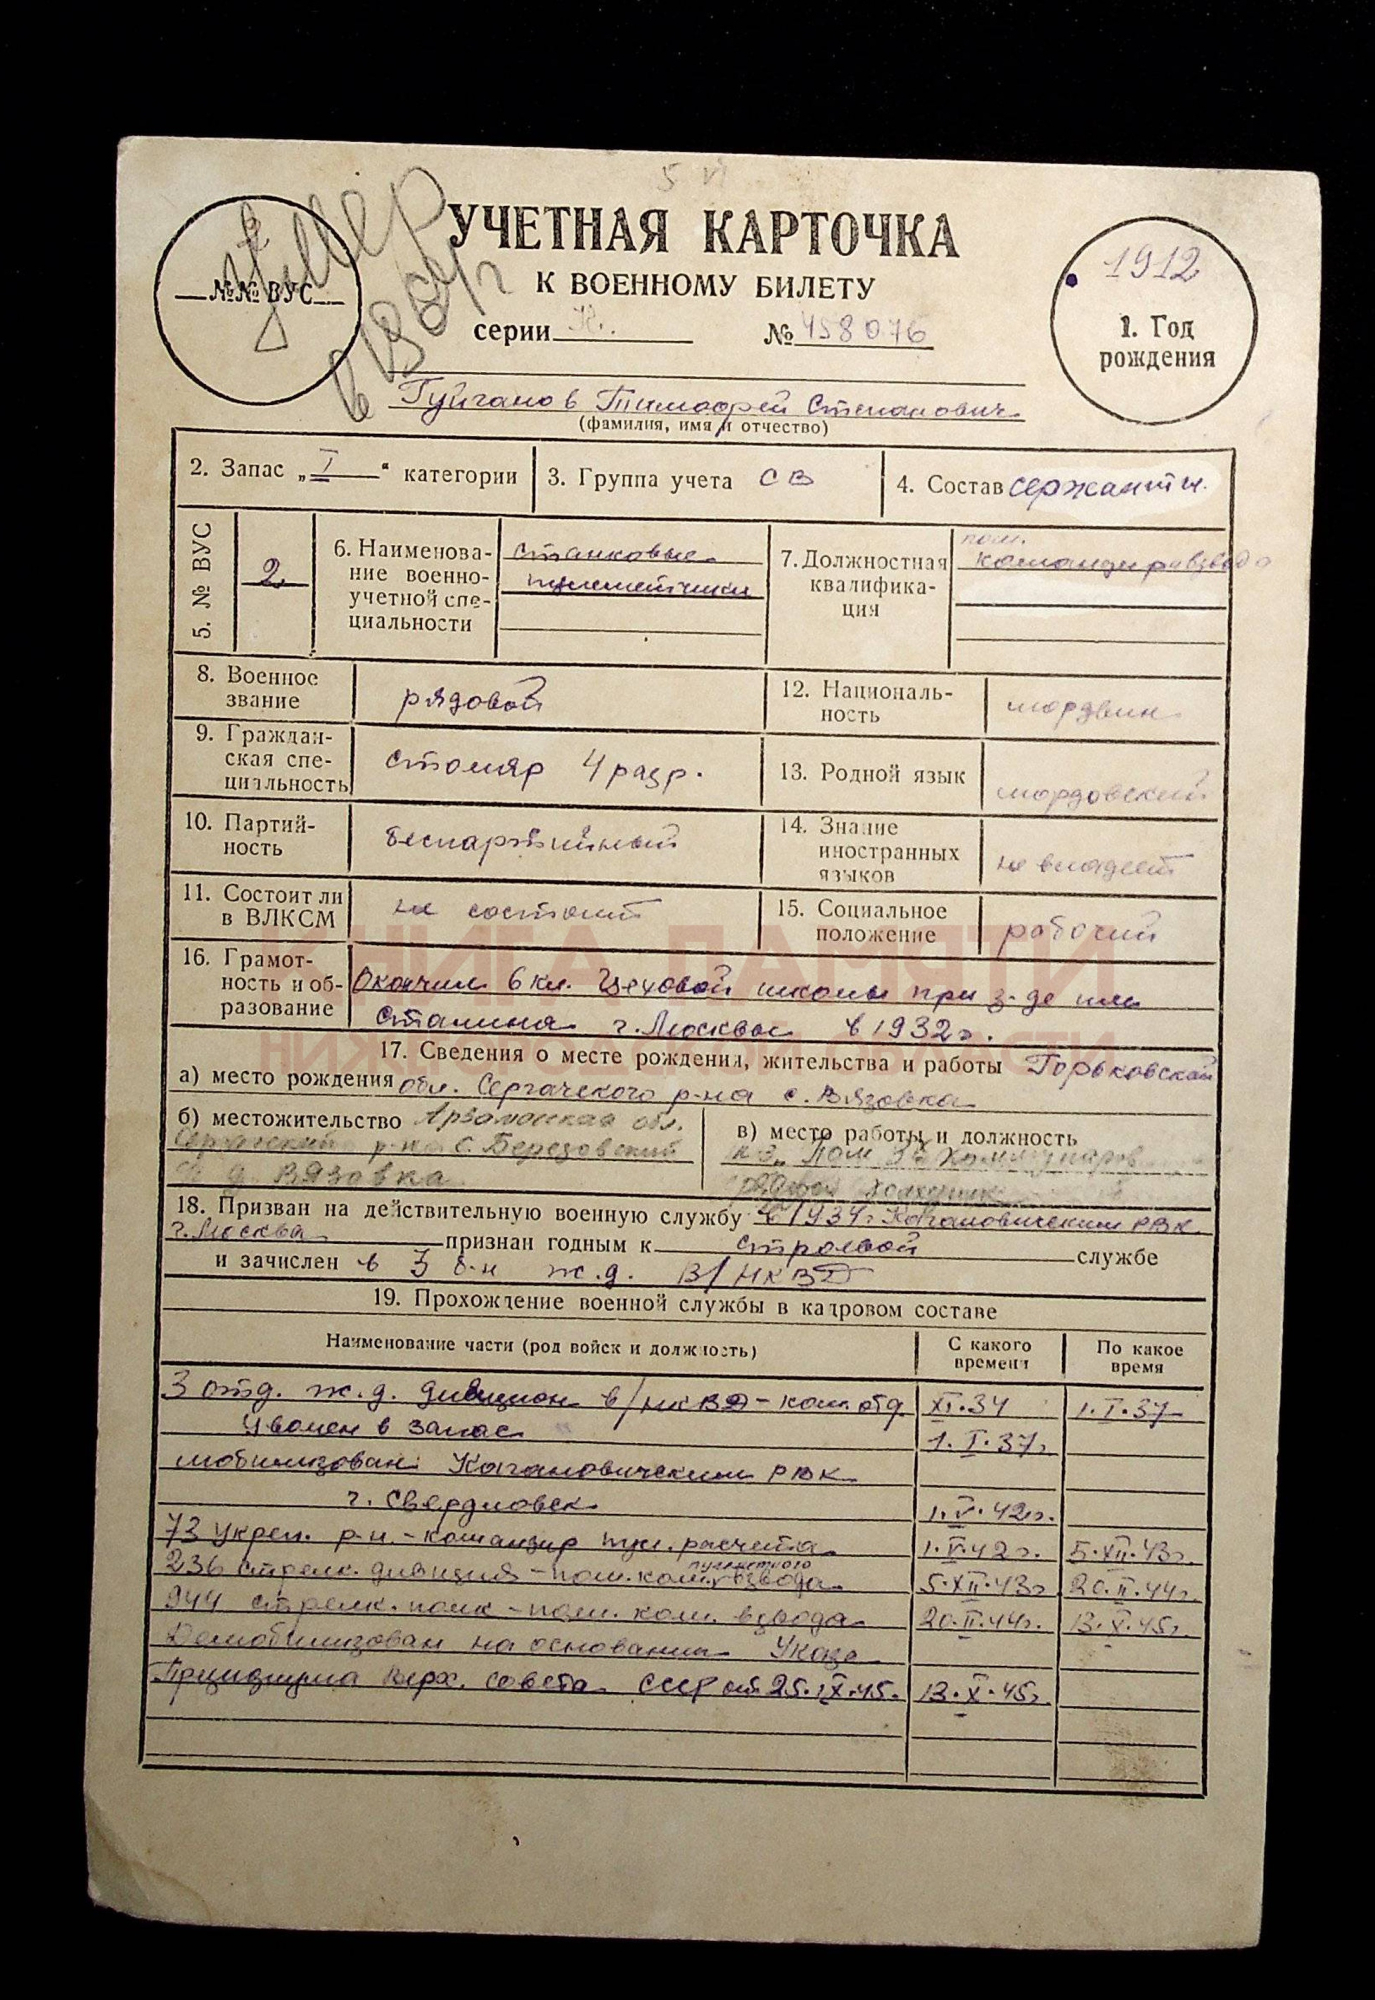 5 VI
УЧЕТНАЯ КАРТОЧКА
К ВОЕННОМУ БИЛЕТУ
№№ ВУС
2
умер
в 1954г
серии Н. № 458076
1912
1. Год
рождения
Гуйганов Тимофей Степанович
(фамилия, имя и отчество)
2. Запас „I“ категории
3. Группа учета СВ
4. Состав сержанты.
5. № ВУС
2
6. Наименова-
ние военно-
учетной спе-
циальности
станковые
пулеметчики
7. Должностная
квалифика-
ция
пом.
командира взвода
8. Военное
звание
рядовой
12. Националь-
ность
мордвин
9. Граждан-
ская спе-
циальность
столяр 4 разр.
13. Родной язык
мордовский
10. Партий-
ность
беспартийный
14. Знание
иностранных
языков
не владеет
11. Состоит ли
в ВЛКСМ
не состоит
15. Социальное
положение
рабочий
КНИГА ПАМЯТИ
НИЖЕГОРОДСКОЙ ОБЛАСТИ
16. Грамот-
ность и об-
разование
Окончил 6 кл. Цеховой школы при з-де им
Сталина г. Москвы в 1932г.
17. Сведения о месте рождения, жительства и работы
а) место рождения Горьковской
обл. Сергачского р-на с. Вязовка
б) местожительство Арзамасская обл.
Сергачский р-н с. Березовский
д. Вязовка
в) место работы и должность
к-з „Пам. 26 Коммунаров
рядовой колхозник
18. Призван на действительную военную службу в 1934г Кагановическим РВК
г. Москва признан годным к строевой службе
и зачислен в 3 б-н ж.д. В/НКВД
19. Прохождение военной службы в кадровом составе
Наименование части (род войск и должность)
С какого
времени
По какое
время
3 отд. ж.д. дивизион в/НКВД - ком. отд. XI.34 1.I.37
Уволен в запас 1.I.37г.
мобилизован Кагановическим РВК
г. Свердловск 1.V.42г.
73 укреп. р-н. - командир пул. расчета 1.V.42г. 5.XII.43г.
пулеметного
236 стрелк. дивизия - пом. ком. взвода 5.XII.43г 20.II.44г.
944 стрелк. полк - пом. ком. взвода 20.II.44г. 13.X.45г.
Демобилизован на основании Указа
Президиума Верх. Совета СССР от 25.IX.45. 13.X.45г.